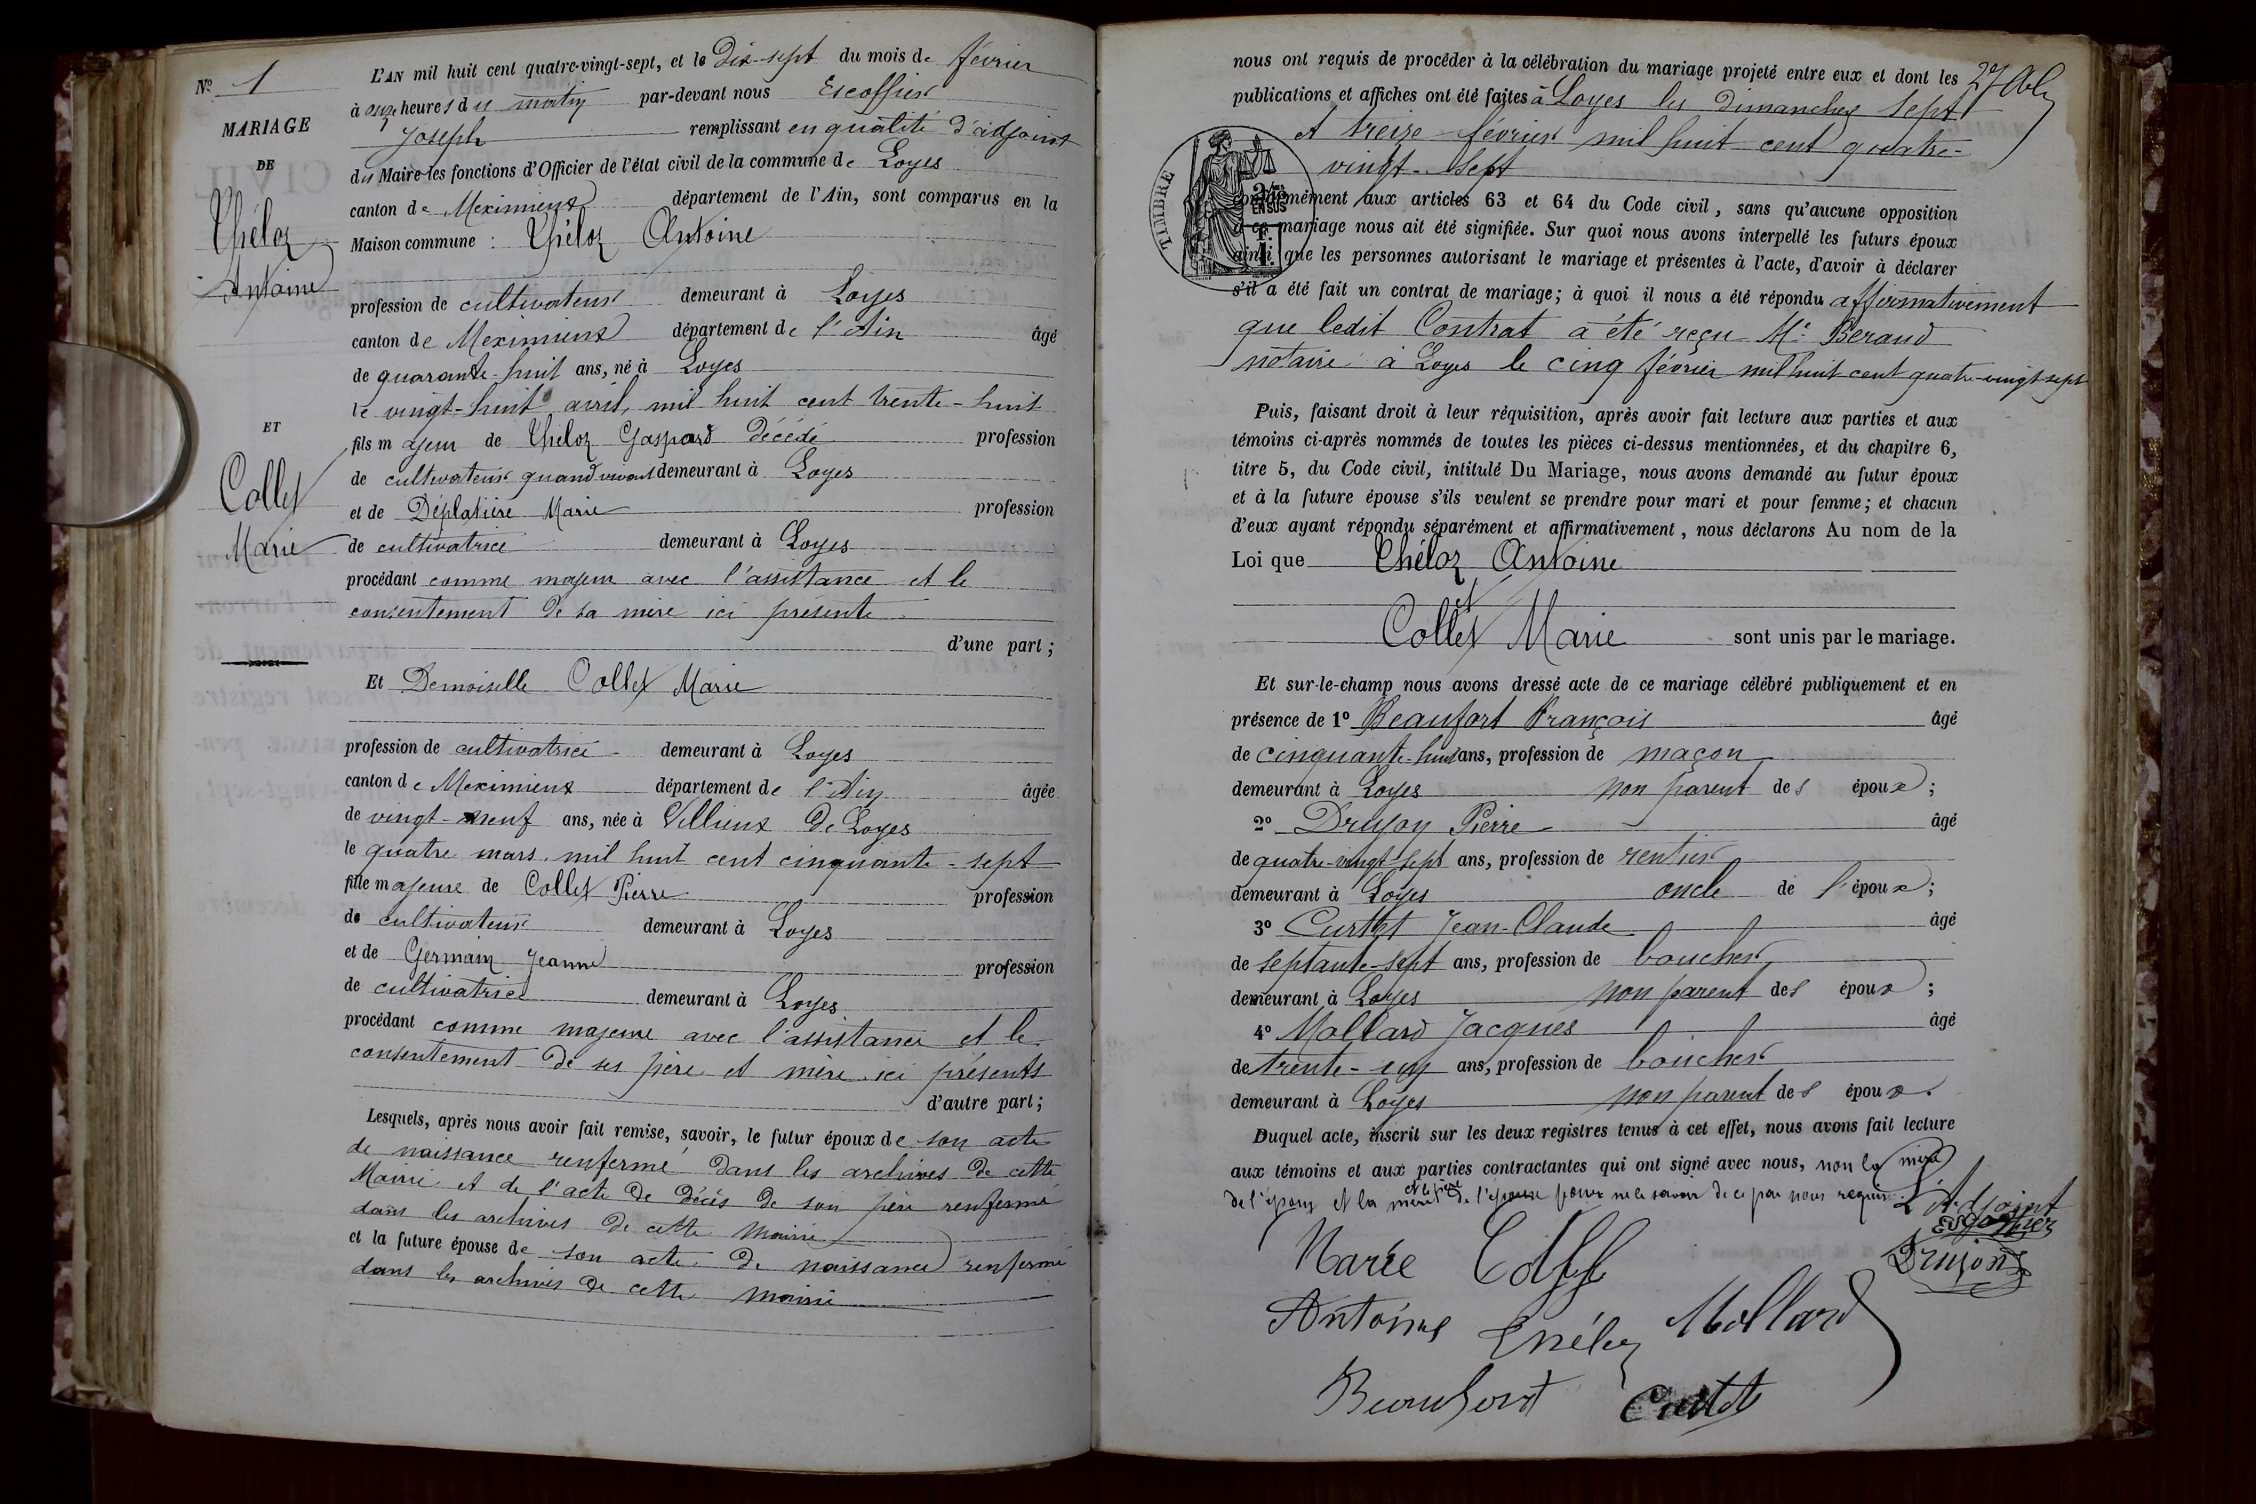 Nº 1
MARIAGE
DE
Théloz
Antoine
ET
Collet
Marie
L'AN mil huit cent quatre-vingt-sept, et le Dix-sept du mois de février
à onze heures du matin par-devant nous Escoffier
Joseph remplissant en qualité d'adjoint
du Maire les fonctions d'Officier de l'état civil de la commune de Loyes
canton de Meximieux département de l'Ain, sont comparus en la
Maison commune : Théloz Antoine
profession de cultivateur demeurant à Loyes
canton de Meximieux département de l'Ain âgé
de quarante-huit ans, né à Loyes
le vingt-huit avril, mil huit cent trente-huit
fils majeur de Théloz Gaspard décédé profession
de cultivateur quand vivant demeurant à Loyes
et de Déplatière Marie profession
de cultivatrice demeurant à Loyes
procédant comme majeur avec l'assistance et le
consentement de sa mère ici présente
d'une part ;
Et Demoiselle Collet Marie
profession de cultivatrice demeurant à Loyes
canton de Meximieux département de l'Ain âgée
de vingt-neuf ans, née à Villieux De Loyes
le quatre mars mil huit cent cinquante-sept
fille majeure de Collet Pierre profession
de cultivateur demeurant à Loyes
et de Germain Jeanne profession
de cultivatrice demeurant à Loyes
procédant comme majeure avec l'assistance et le
consentement de ses père et mère ici présents
d'autre part ;
Lesquels, après nous avoir fait remise, savoir, le futur époux de son acte
de naissance renfermé dans les archives de cette
Mairie et de l'acte de décès de son père renfermé
dans les archives de cette mairie
et la future épouse de son acte de naissance renfermé
dans les archives de cette mairie
nous ont requis de procéder à la célébration du mariage projeté entre eux et dont les
publications et affiches ont été faites à Loyes les dimanches sept
et treize février mil huit cent quatre-
vingt-sept
TIMBRE
2/10 EN SUS
conformément aux articles 63 et 64 du Code civil, sans qu'aucune opposition
à ce mariage nous ait été signifiée. Sur quoi nous avons interpellé les futurs époux
ainsi que les personnes autorisant le mariage et présentes à l'acte, d'avoir à déclarer
s'il a été fait un contrat de mariage ; à quoi il nous a été répondu affirmativement
que ledit Contrat a été reçu Mᵉ Beraud
notaire à Loyes le cinq février mil huit cent quatre-vingt-sept
Puis, faisant droit à leur réquisition, après avoir fait lecture aux parties et aux
témoins ci-après nommés de toutes les pièces ci-dessus mentionnées, et du chapitre 6,
titre 5, du Code civil, intitulé Du Mariage, nous avons demandé au futur époux
et à la future épouse s'ils veulent se prendre pour mari et pour femme ; et chacun
d'eux ayant répondu séparément et affirmativement, nous déclarons Au nom de la
Loi que Théloz Antoine
et
Collet Marie sont unis par le mariage.
Et sur-le-champ nous avons dressé acte de ce mariage célébré publiquement et en
présence de 1º Beaufort François âgé
de cinquante-huit ans, profession de maçon
demeurant à Loyes non parent des époux ;
2º Drujon Pierre âgé
de quatre-vingt-sept ans, profession de rentier
demeurant à Loyes oncle de l'époux ;
3º Curtet Jean-Claude âgé
de septante-sept ans, profession de boucher
demeurant à Loyes non parent des époux ;
4º Mollard Jacques âgé
de trente-un ans, profession de boucher
demeurant à Loyes non parent des époux.
Duquel acte, inscrit sur les deux registres tenus à cet effet, nous avons fait lecture
aux témoins et aux parties contractantes qui ont signé avec nous, non la mère
de l'époux et la mère et le père de l'épouse pour ne le savoir de ce par nous requis.
L'Adjoint
Escoffier
Drujon
Marie Collet
Antoine Théloz Mollard
Beaufort Curtet